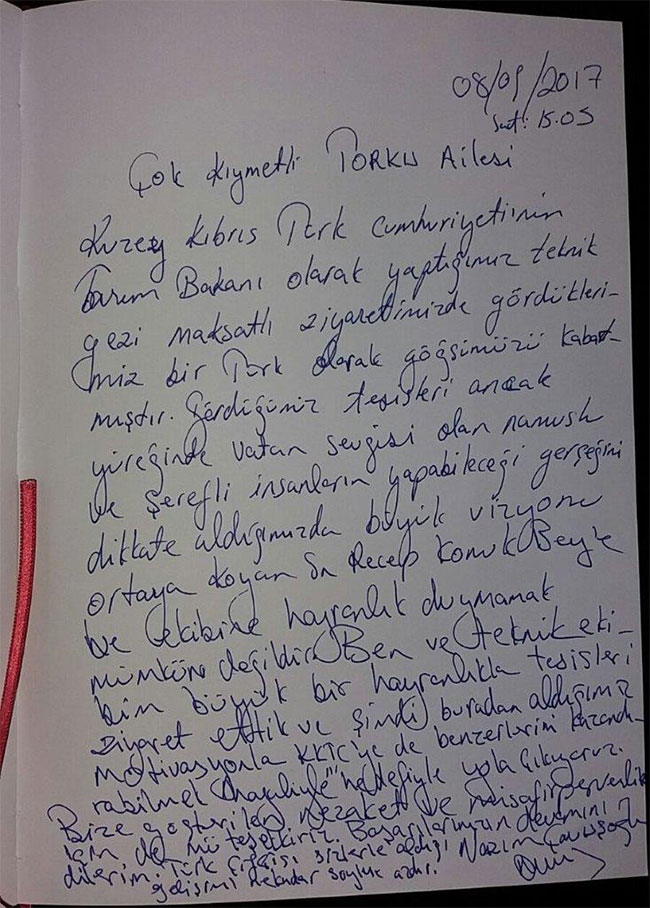 08/09/2017
Saat: 15.05
Çok Kıymetli TORKU Ailesi
Kuzey Kıbrıs Türk Cumhuriyetinin
Tarım Bakanı olarak yaptığımız teknik
gezi maksatlı ziyaretimizde gördükleri-
miz bir Türk olarak göğsümüzü kabart-
mıştır. Gördüğümüz tesisleri ancak
yüreğinde vatan sevgisi olan namuslu
ve şerefli insanların yapabileceği gerçeğini
dikkate aldığımızda büyük vizyonu
ortaya koyan Sn Recep Konuk Bey'e
ve ekibine hayranlık duymamak
mümkün değildir. Ben ve teknik eki-
bim büyük bir hayranlıkla tesisleri
ziyaret ettik ve şimdi buradan aldığımız
motivasyonla KKTC'ye de benzerlerini kazandı-
rabilmek hayaliyle hedefiyle yola çıkıyoruz.
Bize gösterilen nezaket ve misafirperverlik
için de müteşekkiriz. Başarılarınızın devamını
dilerim. Türk çiftçisi sizlerle aldığı Nazım Çavuşoğlu
gelişimi nekadar söylük azdır.